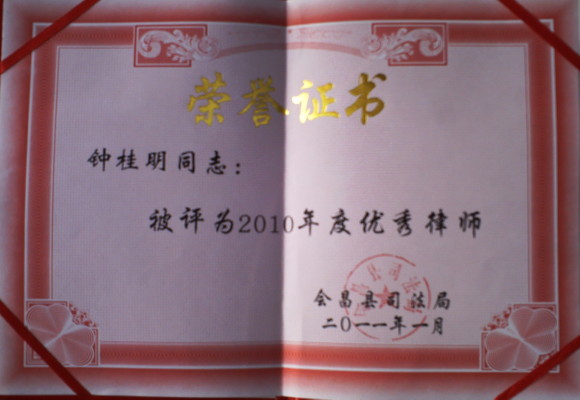 荣誉证书
钟桂明同志：
被评为2010年度优秀律师
会昌县司法局
二〇一一年一月